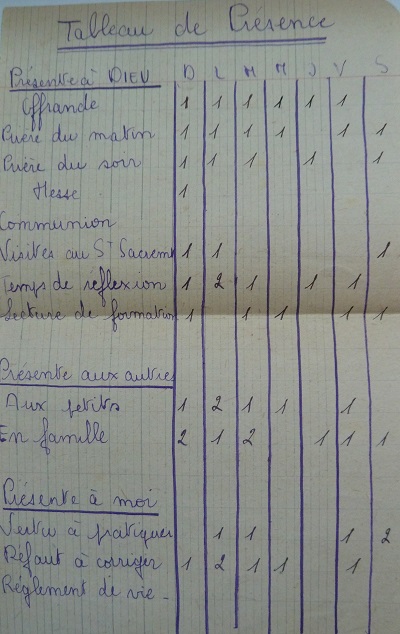 Tableau de Présence
Présente à DIEU D L M M J V S
Offrande 1 1 1 1 1 1
Prière du matin 1 1 1 1 1 1
Prière du soir 1 1 1 1 1
Messe 1
Communion
Visites au St Sacremt 1 1 1
Temps de réflexion 1 2 1 1 1
Lecture de formation 1 1 1 1 1
Présente aux autres
Aux petits 1 2 1 1 1
En famille 2 1 2 1 1 1
Présente à moi
Vertu à pratiquer 1 1 1 2
Défaut à corriger 1 2 1 1 1
Règlement de vie -